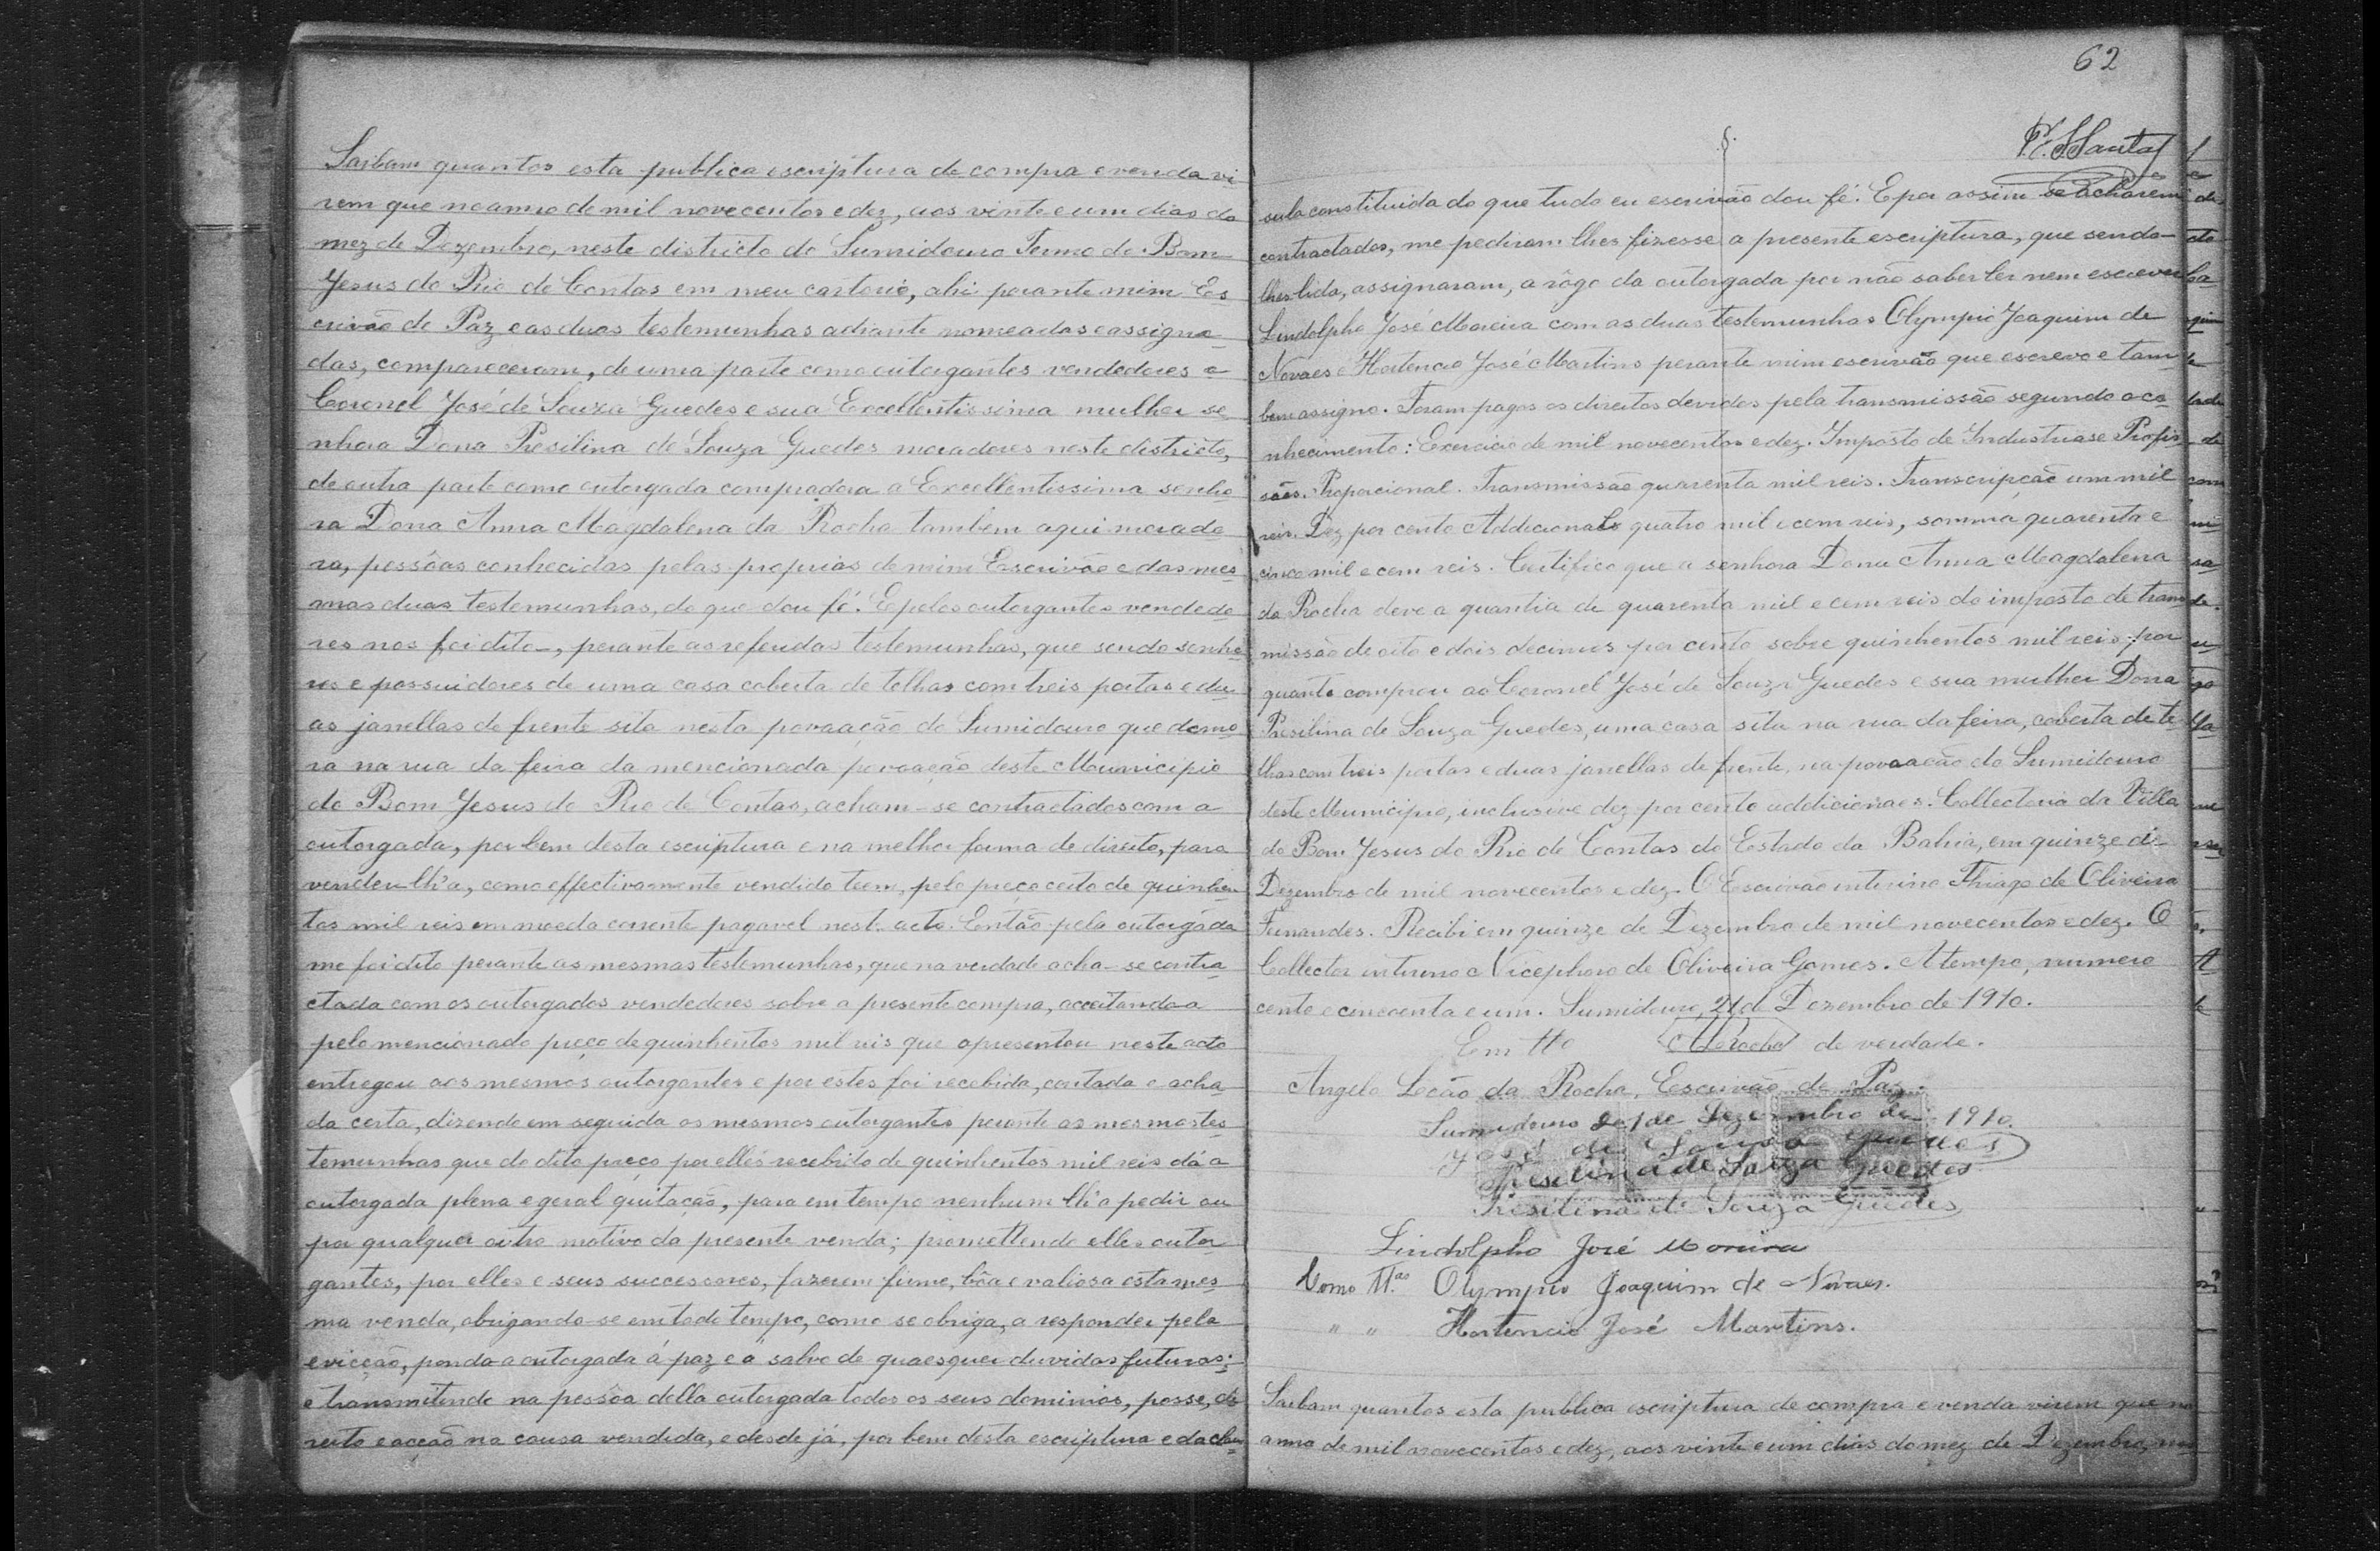 Saibam quantos esta publica escriptura de compra e venda vi
rem que no anno de mil novecentos e dez, aos vinte e um dias do
mez de Dezembro, neste districto do Sumidouro Termo do Bom
Jesus do Rio de Contas em meu cartorio, ahi perante mim Es
crivão de Paz e as duas testemunhas adiante nomeadas e assigna
das, compareceram, de uma parte como outorgantes vendedores o
Coronel José de Souza Guedes e sua Excellentissima mulher se
nhora Dona Presilina de Souza Guedes moradores neste districto,
de outra parte como outorgada compradora a Excellentissima senho
ra Dona Anna Magdalena da Rocha tambem aqui morado
ra, pessôas conhecidas pelas proprias de mim Escrivão e das mes
mas duas testemunhas, do que dou fé. E pelos outorgantes vendedo
res nos foi dito, perante as referidas testemunhas, que sendo senho
res e possuidores de uma casa coberta de telhas com treis portas e du
as janellas de frente sita nesta povoação do Sumidouro que demo
ra na rua da feira da mencionada povoação deste Municipio
do Bom Jesus do Rio de Contas, acham-se contractados com a
outorgada, por bem desta escriptura e na melhor forma de direito, para
vender lh'a, como effectivamente vendido teem, pelo preço certo de quinhen
tos mil reis em moeda corrente pagavel neste acto. Então pela outorgada
me foi dito perante as mesmas testemunhas, que na verdade acha-se contra
ctada com os outorgados vendedores sobre a presente compra, acceitando a
pelo mencionado preço de quinhentos mil reis que apresentou neste acto
entregou aos mesmos outorgantes e por estes foi recebida, contada e acha
da certa, dizendo em seguida os mesmos outorgantes perante as mesmas tes
temunhas que do dito preço por elles recebido de quinhentos mil reis dá a
outorgada plena e geral quitação, para em tempo nenhum lh'o pedir ou
por qualquer outro motivo da presente venda; promettendo elles outor
gantes, por elles e seus successores, fazerem firme, bôa e valiosa esta mes
ma venda, obrigando-se em todo tempo, como se obriga, a responder pela
evicção, pondo a outorgada á paz e a salvo de quaesquer duvidas futuras;
e transmitindo na pessôa della outorgada todos os seus dominios, posse, di
reito e acção na cousa vendida, e desde já, por bem desta escriptura e da clau
62
sula constituida do que tudo eu escrivão dou fé. E por assim se acharem
contractados, me pediram lhes fizesse a presente escriptura, que sendo
lhes lida, assignaram, a rôgo da outorgada por não saber ler nem escrever
Lindolpho José Moreira com as duas testemunhas Olympio Joaquim de
Novaes e Hortencio José Martins perante mim escrivão que escrevo e tam
bem assigno. Foram pagos os direitos devidos pela transmissão segundo o co
nhecimento: Exercicio de mil novecentos e dez. Imposto de Industrias e Profis
sões. Proporcional. Transmissão quarenta mil reis. Transcripção um mil
reis. Dez por cento Addicionaes quatro mil e cem reis, somma quarenta e
cinco mil e cem reis. Certifico que a senhora Dona Anna Magdalena
da Rocha deve a quantia de quarenta mil e cem reis do imposto de trans
missão de oito e dois decimos por cento sobre quinhentos mil reis por
quanto comprou ao Coronel José de Souza Guedes e sua mulher Dona
Presilina de Souza Guedes, uma casa sita na rua da feira, coberta de te
lhas com treis portas e duas janellas de frente, na povoação do Sumidouro
deste Municipio, inclusive dez por cento addicionaes. Collectoria da Villa
do Bom Jesus do Rio de Contas do Estado da Bahia, em quinze de
Dezembro de mil novecentos e dez. O Escrivão interino Thiago de Oliveira
Fernandes. Recibi em quinze de Dezembro de mil novecentos e dez. O
Collector interino Nicephoro de Oliveira Gomes. A tempo, numero
cento e cincoenta e um. Sumidouro, 21 de Dezembro de 1910.
Em tto ARocha de verdade.
Angelo Leão da Rocha, Escrivão de Paz.
Sumidouro 21 de Dezembro de 1910.
José de Souza Guedes
Presilina de Souza Guedes
Prisilina de Souza Guedes
Lindolpho José Moreira
Como tt.as Olympio Joaquim de Novaes.
" " Hortencio José Martins.
Saibam quantos esta publica escriptura de compra e venda virem que no
anno de mil novecentos e dez, aos vinte e um dias do mez de Dezembro,